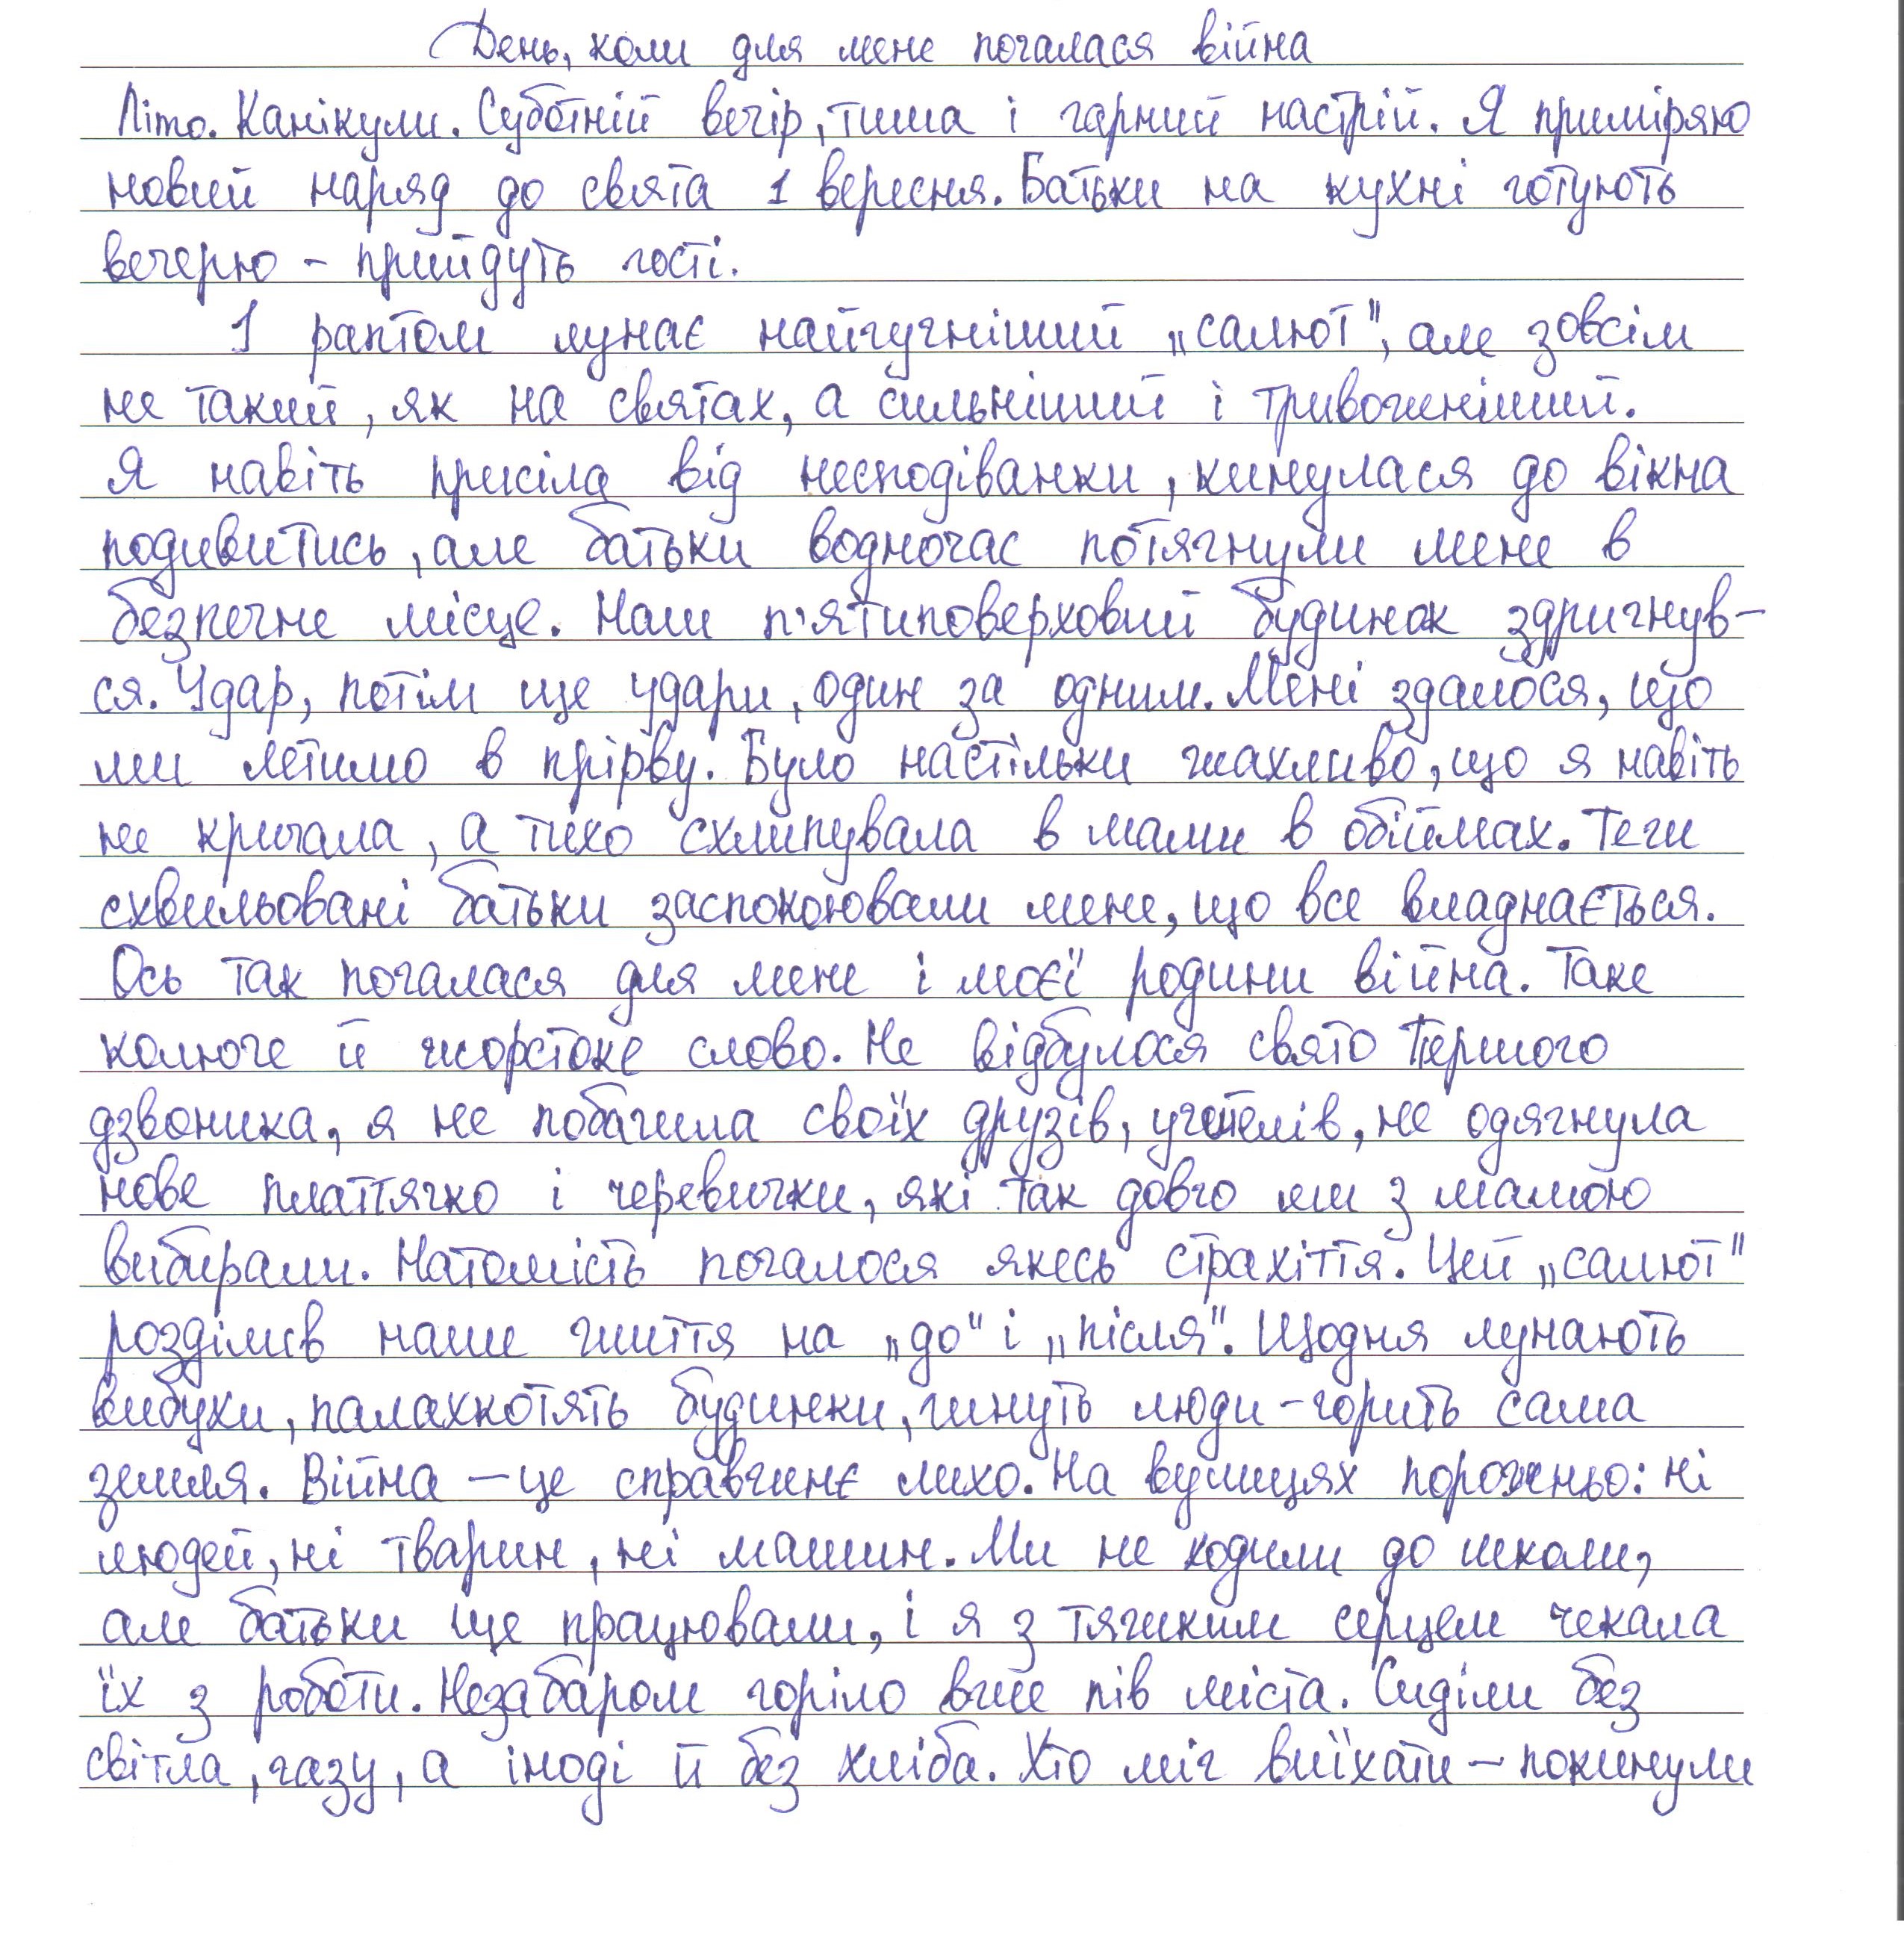 День, коли для мене почалася війна
Літо. Канікули. Суботній вечір, тиша і гарний настрій. Я приміряю
новий наряд до свята 1 вересня. Батьки на кухні готують
вечерю - прийдуть гості.
І раптом лунає найгучніший „салют", але зовсім
не такий, як на святах, а сильніший і тривожніший.
Я навіть присіла від несподіванки, кинулася до вікна
подивитись, але батьки водночас потягнули мене в
безпечне місце. Наш п'ятиповерховий будинок здригнув-
ся. Удар, потім ще удари, один за одним. Мені здалося, що
ми летимо в прірву. Було настільки жахливо, що я навіть
не кричала, а тихо схлипувала в мами в обіймах. Теж
схвильовані батьки заспокоювали мене, що все владнається.
Ось так почалася для мене і моєї родини війна. Таке
колюче й жорстоке слово. Не відбулося свято Першого
дзвоника, я не побачила своїх друзів, учителів, не одягнула
нове платтячко і черевички, які так довго ми з мамою
вибирали. Натомість почалося якесь страхіття. Цей „салют"
розділив наше життя на „до" і „після". Щодня лунають
вибухи, палахкотять будинки, гинуть люди - горить сама
земля. Війна - це справжнє лихо. На вулицях порожньо: ні
людей, ні тварин, ні машин. Ми не ходили до школи,
але батьки ще працювали, і я з тяжким серцем чекала
їх з роботи. Незабаром горіло вже пів міста. Сиділи без
світла, газу, а іноді й без хліба. Хто міг виїхати - покинули